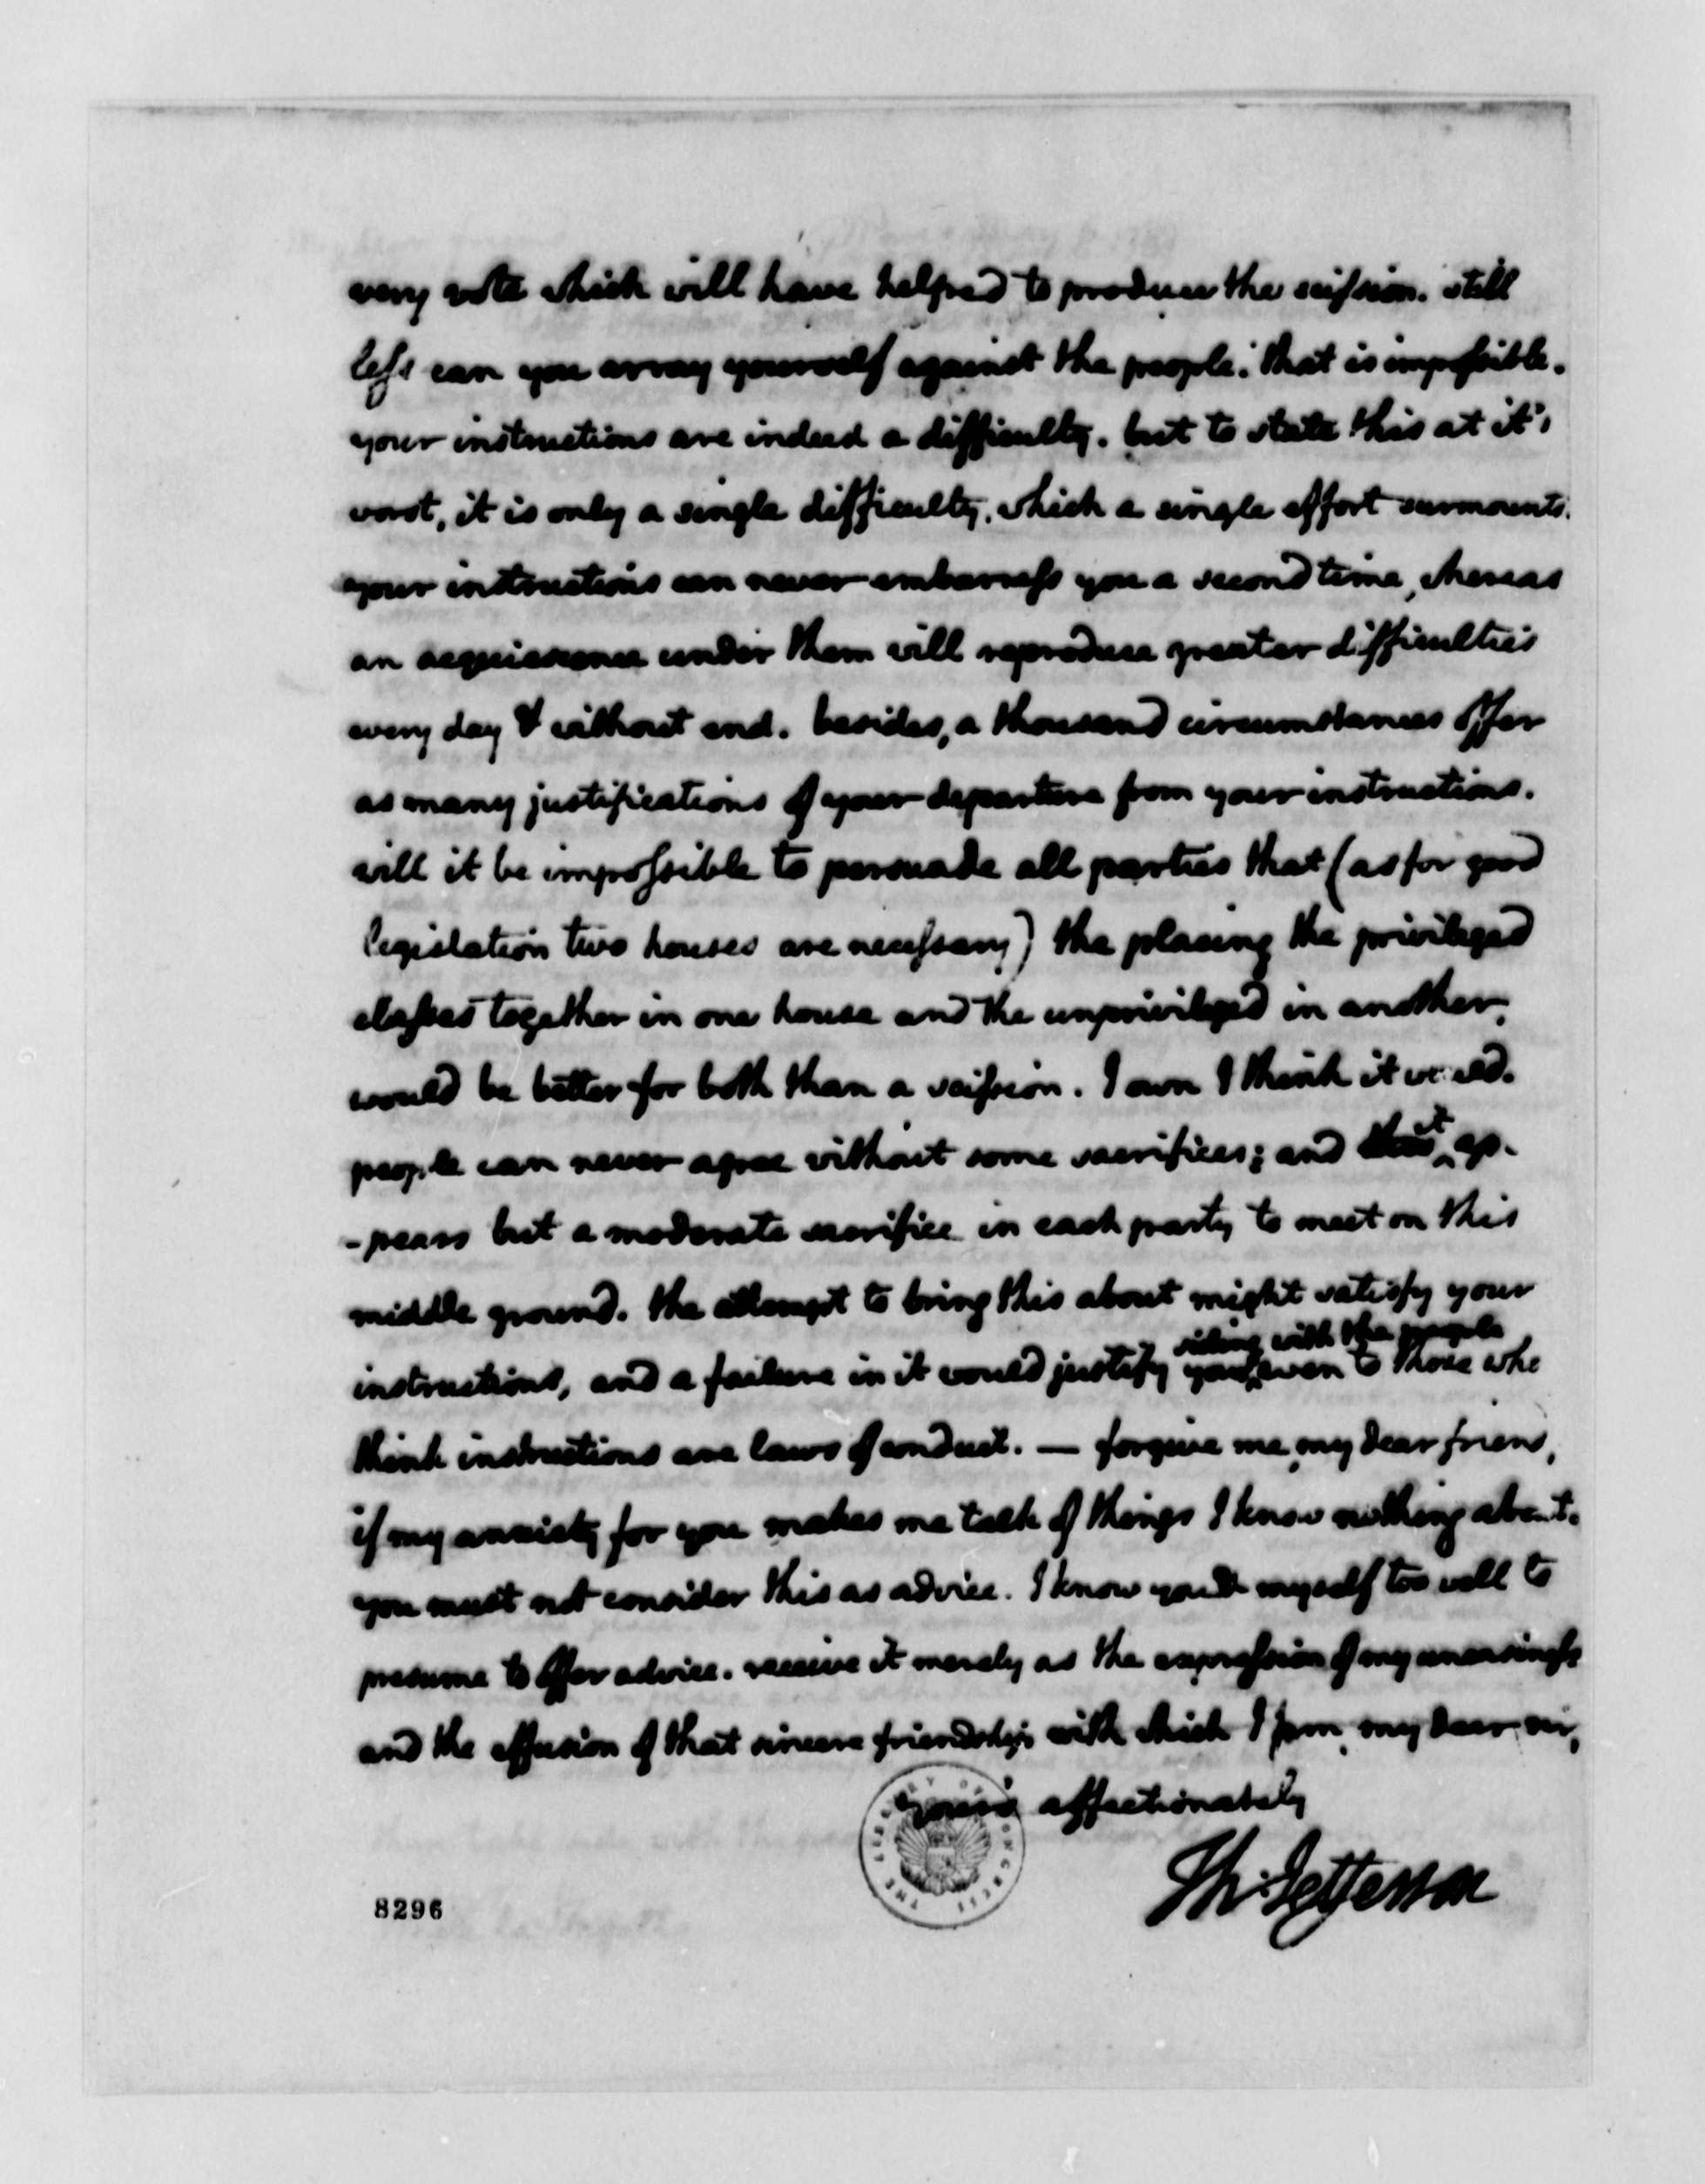 very vote which will have helped to produce the scission. still
less can you array yourself against the people. that is impossible.
your instructions are indeed a difficulty. but to state this at it's
worst, it is only a single difficulty, which a single effort surmounts.
your instructions can never embarrass you a second time, whereas
an acquiescence under them will reproduce greater difficulties
every day & without end. besides, a thousand circumstances offer
as many justifications of your departure from your instructions.
will it be impossible to persuade all parties that (as for good
legislation two houses are necessary) the placing the privileged
classes together in one house and the unprivileged in another,
would be better for both than a scission. I own I think it would.
people can never agree without some sacrifices; and it ap-
-pears but a moderate sacrifice in each party to meet on this
middle ground. the attempt to bring this about might satisfy your
siding with the people
instructions, and a failure in it would justify your even to those who
think instructions are laws of conduct. — forgive me, my dear friend,
if my anxiety for you makes me talk of things I know nothing about.
you must not consider this as advice. I know you & myself too well to
presume to offer advice. receive it merely as the expression of my uneasiness
and the effusion of that sincere friendship with which I am, my dear sir,
yours affectionately
Th: Jefferson
THE LIBRARY OF CONGRESS
8296